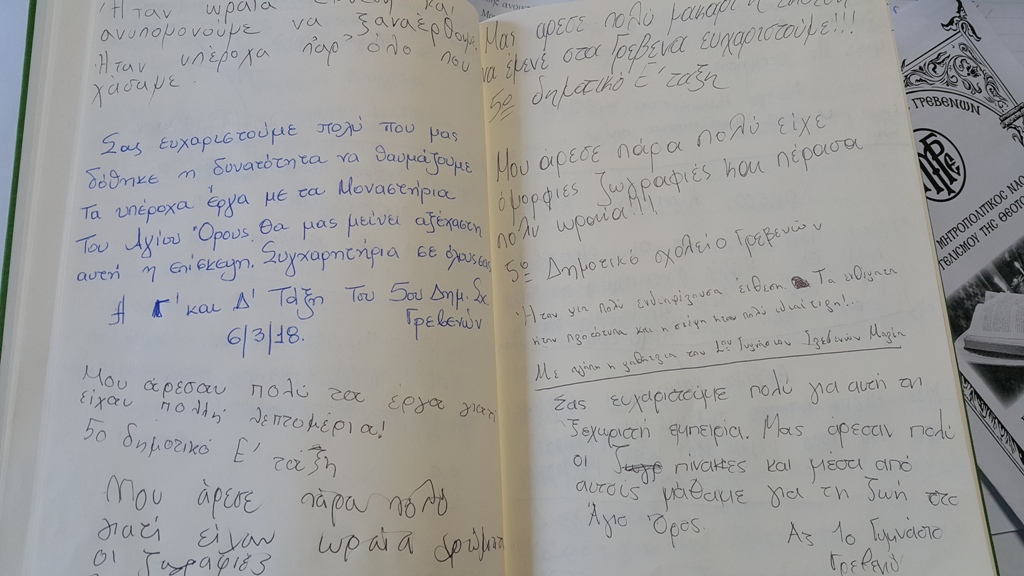 Ήταν ωραία και
ανυπομονούμε να ξαναέρθουμε.
Ήταν υπέροχα παρ' όλο που
χάσαμε.
Σας ευχαριστούμε πολύ που μας
δόθηκε η δυνατότητα να θαυμάζουμε
τα υπέροχα έργα με τα Μοναστήρια
του Αγίου Όρους. Θα μας μείνει αξέχαστη
αυτή η επίσκεψη. Συγχαρητήρια σε όλους σας
Γ' και Δ' Τάξη του 5ου Δημ. Σχ.
Γρεβενών
6/3/18.
Μου άρεσαν πολύ τα έργα γιατί
είχαν πολλή λεπτομέρια!
5ο δημοτικό Ε' τάξη
Μου άρεσε πάρα πολύ
γιατί είχαν ωραία χρώματα
οι ζωγραφιές
Μας άρεσε πολύ μακάρι η έκθεση
να έμενε στα Γρεβενά ευχαριστούμε!!!
5ο δημοτικό Ε' ταξη
Μου άρεσε πάρα πολύ είχε
όμορφιες ζωγραφιές και πέρασα
πολύ ωραία!!!
5ο Δημοτικό σχολείο Γρεβενών
Ήταν μια πολύ ενδιαφέρουσα έκθεση. Τα
ήταν και η ήταν πολύ
Με αγάπη η μαθήτρια του 1ου Γρεβενών Μαρία
Σας ευχαριστούμε πολύ για αυτή τη
ξεχωριστή εμπειρία. Μας άρεσαν πολύ
οι πίνακες και μέσα από
αυτούς μάθαμε για τη ζωή στο
Άγιο Όρος.
Α3 1ο Γυμνάσιο
Γρεβενών
ΓΡΕΒΕΝΩΝ
ΜΗΤΡΟΠΟΛΙΤΙΚΟΣ ΝΑΟΣ
ΤΗΣ ΘΕΟΤΟ